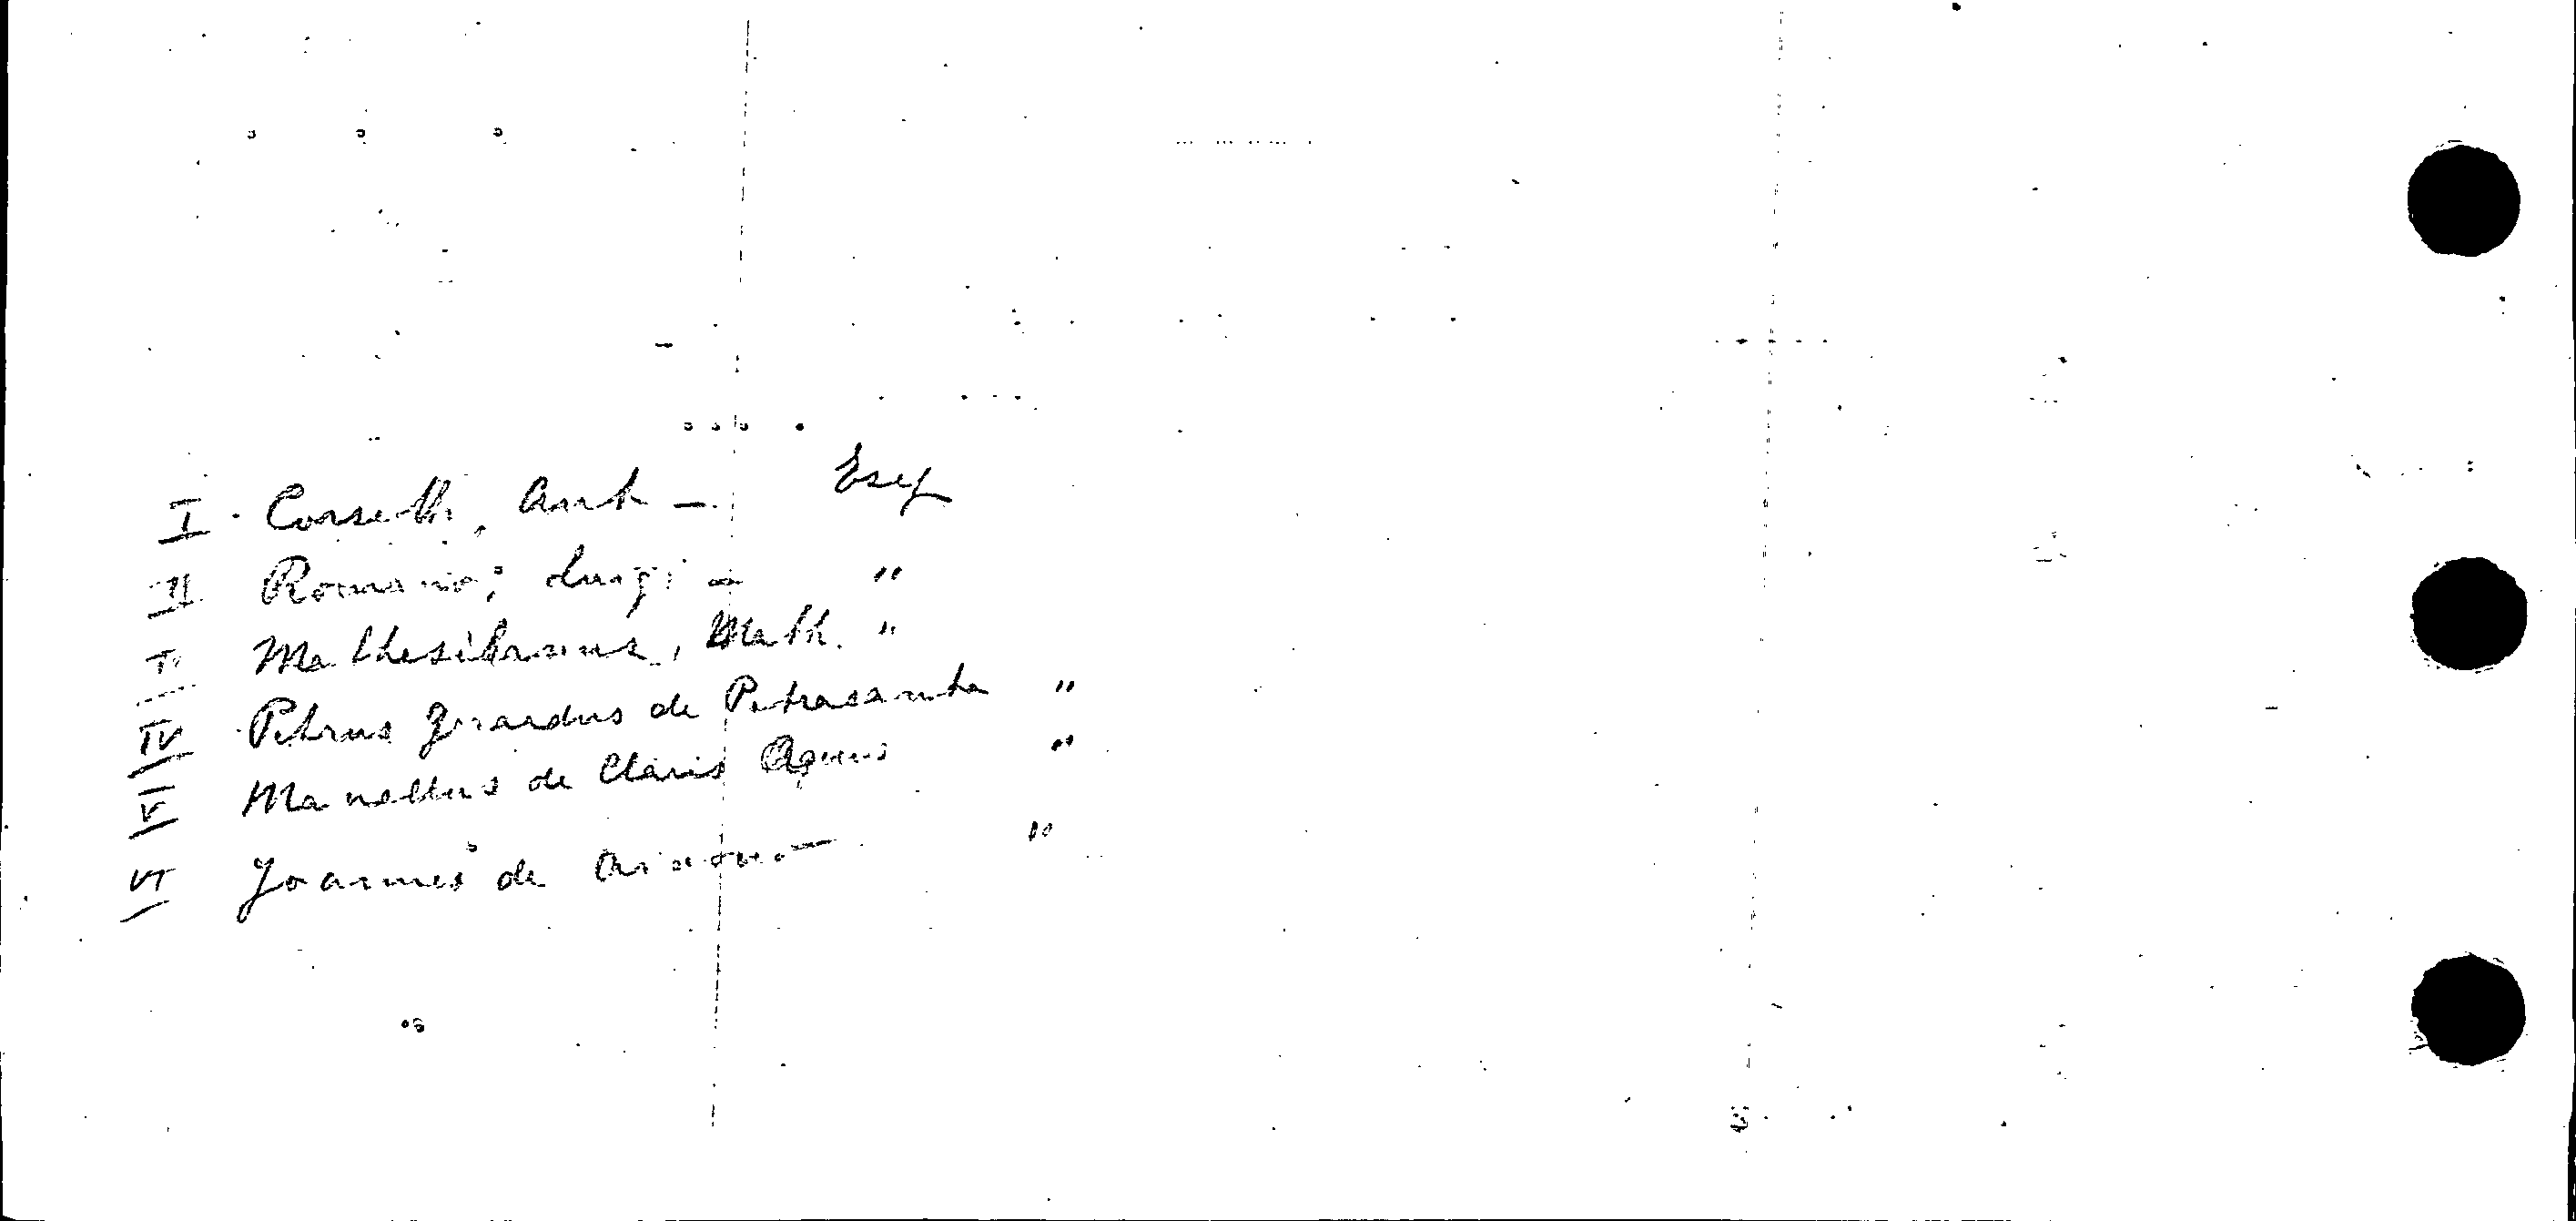 I. Corsetti, Ant — Esq
II Romano; Luigi — "
Mathesilanus, Math. "
IV Petrus Gerardus de Petrasancta "
V Manellus de Claris Aquis "
VI Joannes de